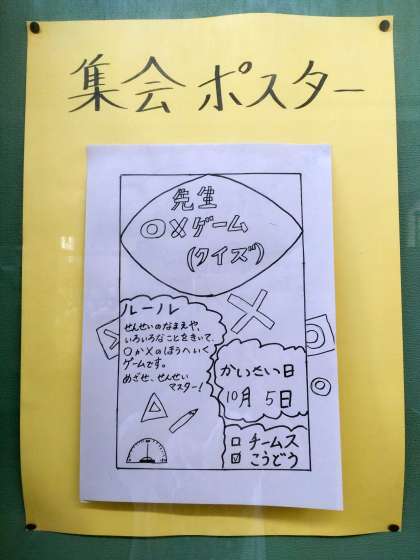 集会 ポスター
先生
○×ゲーム
(クイズ)
ルール
せんせいのなまえや、
いろいろなことをきいて、
○か×のほうへいく
ゲームです。
めざせ、せんせい
マスター!
かいさい日
10月 5日
□ チームス
☑ こうどう